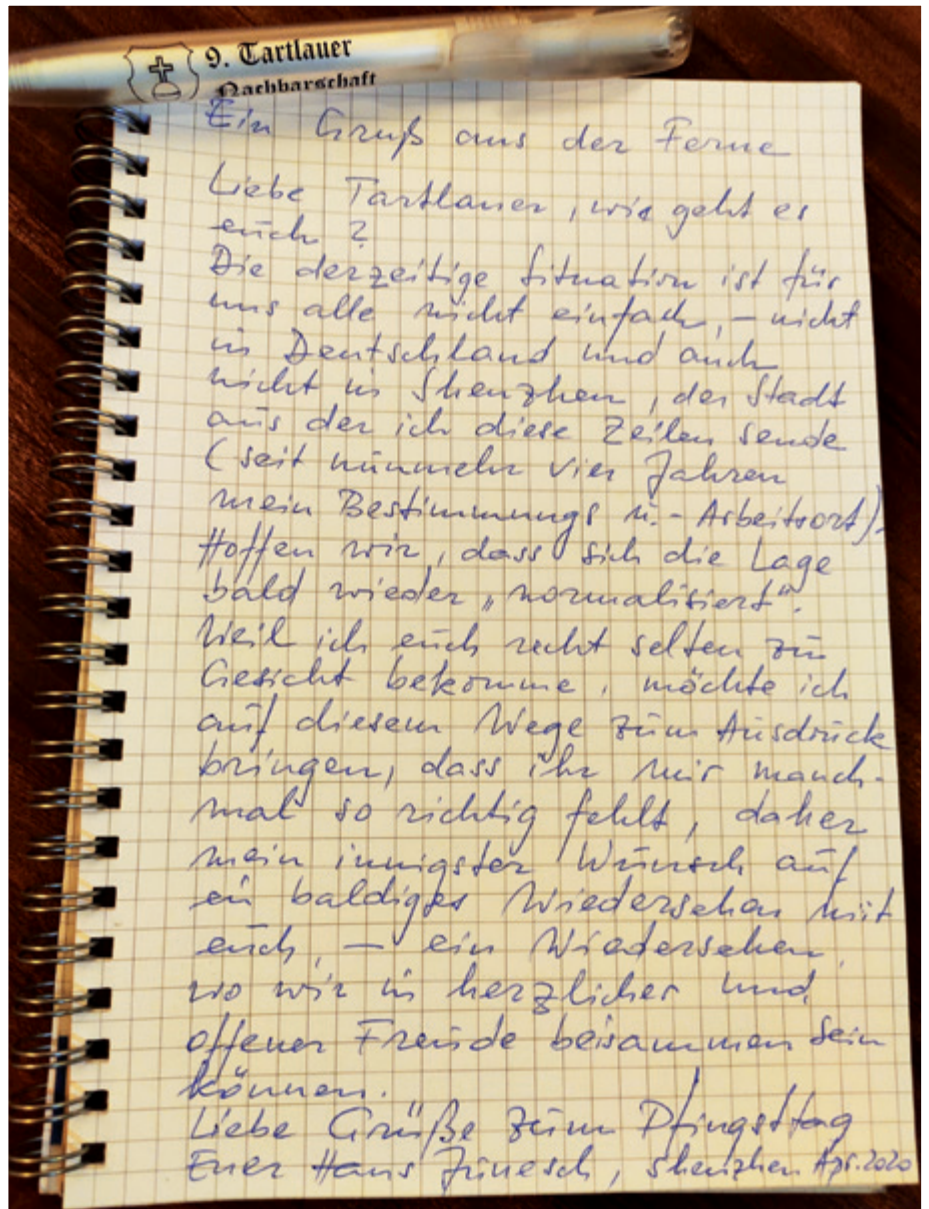 9. Tartlauer
Nachbarschaft
Ein Gruß aus der Ferne
Liebe Tartlauer, wie geht es
euch ?
Die derzeitige Situation ist für
uns alle nicht einfach, – nicht
in Deutschland und auch
nicht in Shenzhen, der Stadt
aus der ich diese Zeilen sende
(seit nunmehr vier Jahren
mein Bestimmungs u.- Arbeitsort).
Hoffen wir, dass sich die Lage
bald wieder „normalisiert“.
Weil ich euch recht selten zu
Gesicht bekomme, möchte ich
auf diesem Wege zum Ausdruck
bringen, dass ihr mir manch-
mal so richtig fehlt, daher
mein innigster Wunsch auf
ein baldiges Wiedersehen mit
euch, – ein Wiedersehen,
wo wir in herzlicher und
offener Freude beisammen sein
können.
Liebe Grüße zum Pfingsttag
Euer Hans Junesch, Shenzhen Apr. 2020